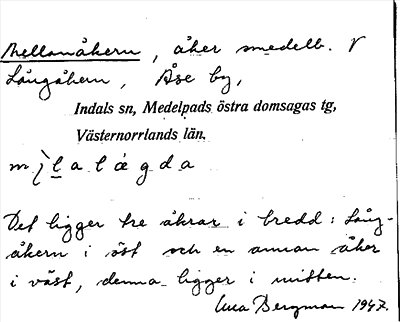 Mellanåkern, åker omedelb. V
Långåkern, Åse by,
Indals sn, Medelpads östra domsagas tg,
Västernorrlands län.
Det ligger tre åkrar i bredd: Lång-
åkern i öst och en annan åker
i väst, denna ligger i mitten.
Bergman 1947.